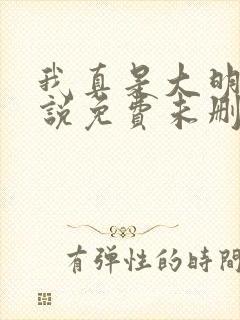 我真是大明
說免費未刪
有弹性的時間